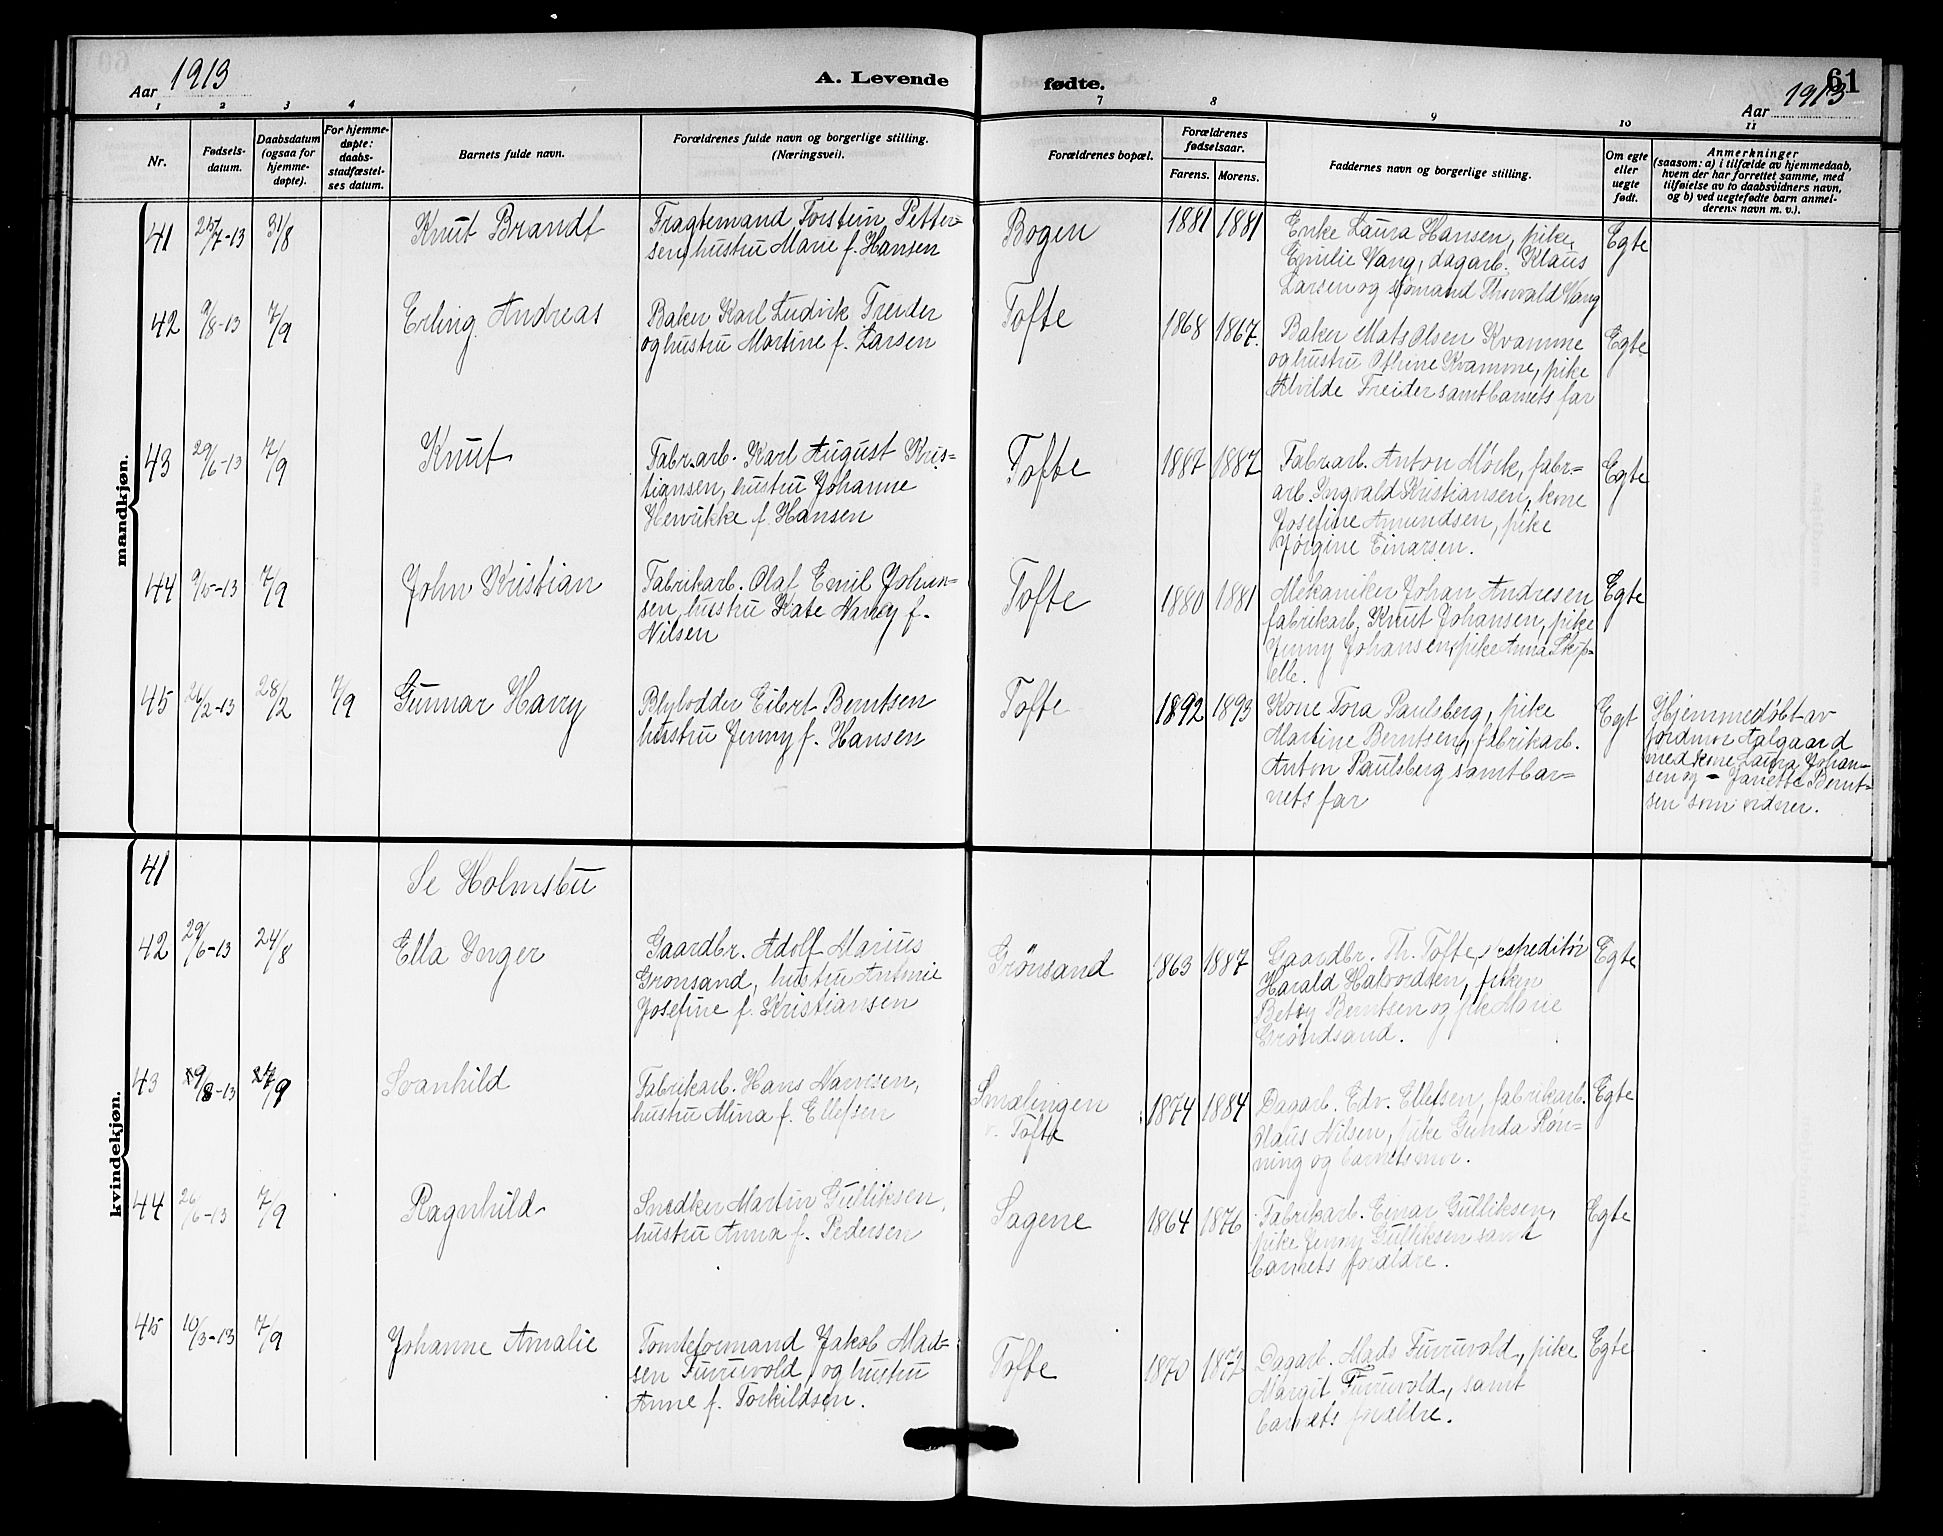 Aar 1913
A. Levende fødte.
61
Aar 1913
1 2 3 4 7 8 9 10 11
Nr.
Fødsels-
datum.
Daabsdatum
(ogsaa for
hjemme-
døpte).
For hjemme-
døpte:
daabs-
stadfæstel-
ses datum.
Barnets fulde navn.
Forældrenes fulde navn og borgerlige stilling.
(Næringsvei).
Forældrenes bopæl.
Forældrenes
fødselsaar.
Farens. Morens.
Faddernes navn og borgerlige stilling.
Om egte
eller
uegte
født.
Anmerkninger
(saasom: a) i tilfælde av hjemmedaab,
hvem der har forrettet samme, med
tilføielse av to daabsvidners navn,
og b) ved uegtefødte barn anmel-
derens navn m. v.).
mandkjøn.
41 25/7-13 31/8 Knut Brandt
Fragtemand Torstein Petter-
sen, hustru Marie f. Hansen
Bogen 1881 1881
Enke Laura Hansen, pike
Emilie Vang, dagarb. Klaus
Larsen og sjømand Thorvald Vang
Egte
42 9/8-13 7/9 Erling Andreas
Baker Karl Ludvik Treider
og hustru Martine f. Larsen
Tofte 1868 1867.
Baker Mats Olsen Kvamme
og hustru Othine Kvamme, pike
Alvilde Treider samt barnets far
Egte
43 29/6-13 7/9 Knut
Fabr.arb. Karl August Kris-
tiansen, hustru Johanne
Henrikke f. Hansen
Tofte 1887 1887
Fabr.arb. Anton Mørk, fabr.-
arb. Ingvald Kristiansen, kone
Josefine Amundsen, pike
Jørgine Einarsen.
Egte
44 9/5-13 7/9 John Kristian
Fabrikarb. Olaf Emil Johan-
sen, hustru Kate Nancy f.
Nilsen
Tofte 1880 1881
Mekaniker Johan Andresen
fabrikarb. Knut Johansen, pike
Jenny Johansen, pike Anna Skip-
elle.
Egte
45 26/2-13 28/2 7/9 Gunnar Harry
Blylodder Eilert Berntsen
hustru Jenny f. Hansen
Tofte 1892 1893
Kone Tora Paulsberg, pike
Martine Berntsen, fabrikarb.
Anton Paulsberg samt bar-
nets far
Egt
Hjemmedøbt av
jordmor Aalgaard
med kone Laura Johan-
sen og - Janette Bernt-
sen som vidner.
kvindekjøn.
41 Se Holmsbu
42 29/6-13 24/8 Ella Inger
Gaardbr. Adolf Marius
Grønsand, hustru Antonie
Josefine f. Kristiansen
Grønsand 1863 1887
Gaardbr. Th. Tofte, expeditør
Harald Halvordsen, piken
Betsy Berntsen og pike Marie
Grøndsand.
Egte
43 9/8-13 7/9 Svanhild
Fabrikarb. Hans Hansen,
hustru Mina f. Ellefsen
Smalingen
v. Tofte
1874 1884
Dagarb. Edv. Ellefsen, fabrikarb.
Klaus Nilsen, pike Gunda Røn-
ning og barnets mor.
Egte
44 26/6-13 7/9 Ragnhild
Snedker Martin Gulliksen,
hustru Anna f. Pedersen
Sagene 1864 1876
Fabrikarb. Einar Gulliksen,
pike Jenny Gulliksen samt
barnets forældre.
Egte
45 10/3-13 7/9 Johanne Amalie
Tomteformand Jakob Mad-
sen Furuvold og hustru
Anne f. Torkildsen.
Tofte 1870 1872
Dagarb. Mads Furuvold, pike
Margit Furuvold, samt
barnets forældre.
Egte